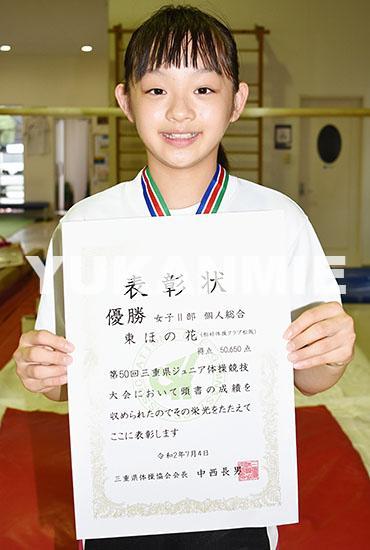 表彰状
優勝 女子Ⅱ部 個人総合
東ほの花(相好体操クラブ松阪)
得点 50.650点
第50回三重県ジュニア体操競技
大会において頭書の成績を
収められたのでその栄光をたたえて
ここに表彰します
令和2年7月4日
三重県体操協会会長 中西長男
YUKANMIE